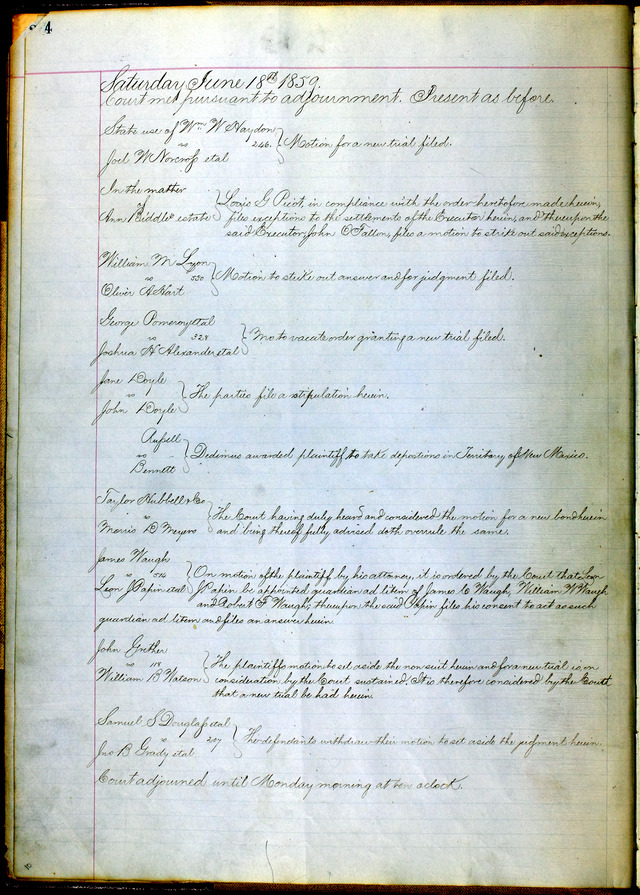 4
Saturday June 18th 1859
Court met pursuant to adjournment. Present as before.
State use of Wm W Haydon
vs 246. Motion for a new trial filed.
Joel W Norcross etal
In the matter
of Louis G Picot, in compliance with the order heretofore made herein,
Ann Biddles estate files exceptions to the settlements of the Executor herein, and thereupon the
said Executor, John O'Fallon, files a motion to strike out said exceptions.
William M Lyon
vs 530 Motion to strike out answer and for judgment filed.
Oliver A Hart
George Pomeroy etal
vs 328 Mo to vacate order granting a new trial filed.
Joshua H Alexander etal
Jane Doyle
vs The parties file a stipulation herein.
John Doyle
Russell
vs Dedimus awarded plaintiff to take depostions in Territory of New Mexico.
Bennett
Taylor Hubbell & Co
vs The Court having duly heard and considered the motion for a new bond herein
Morris D Meyers and being thereof fully advised doth overrule the same.
James Waugh
vs 514 On motion of the plaintiff by his attorney, it is ordered by the Court that Leon
Leon J Papin etal J Papin be appointed guardian ad litem of James C Waugh, William W Waugh
and Robert F Waugh, thereupon the said Papin files his consent to act as such
guardian ad litem and files an answer herein
John Grether
vs 118 The plaintiffs motion to set aside the non suit herein and for a new trial is on
William B Watson consideration by the Court sustained. It is therefore considered by the Court
that a new trial be had herein.
Samuel S Douglass etal
vs 207 The defendants withdraw their motion to set aside the judgment herein.
Jno B Grady etal
Court adjourned until Monday morning at ten oclock.